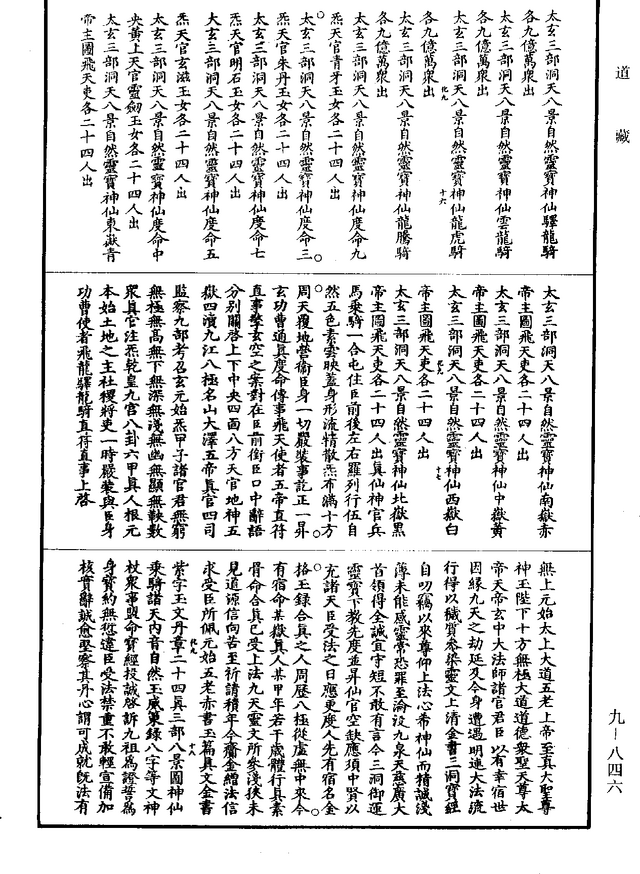 道藏
太玄三部洞天八景自然靈寶神仙驛龍騎
各九億萬衆出
太玄三部洞天八景自然靈寶神仙雲龍騎
各九億萬衆出
太玄三部洞天八景自然靈寶神仙龍虎騎
化九 十六
各九億萬衆出
太玄三部洞天八景自然靈寶神仙龍騰騎
各九億萬衆出
太玄三部洞天八景自然靈寶神仙度命九
炁天官青牙玉女各二十四人出
太玄三部洞天八景自然靈寶神仙度命三
炁天官朱丹玉女各二十四人出
太玄三部洞天八景自然靈寶神仙度命七
炁天官明石玉女各二十四人出
太玄三部洞天八景自然靈寶神仙度命五
炁天官玄滋玉女各二十四人出
太玄三部洞天八景自然靈寶神仙度命中
央黃上天官靈劒玉女各二十四人出
太玄三部洞天八景自然靈寶神仙東嶽青
帝主圖飛天吏各二十四人出
太玄三部洞天八景自然靈寶神仙南嶽赤
帝主圖飛天吏各二十四人出
太玄三部洞天八景自然靈寶神仙中嶽黃
帝主圖飛天吏各二十四人出
太玄三部洞天八景自然靈寶神仙西嶽白
化九 十七
帝主圖飛天吏各二十四人出
太玄三部洞天八景自然靈寶神仙北嶽黑
帝主圖飛天吏各二十四人出真仙神官兵
馬乘騎一合屯住臣前後左右羅列行伍自
然五色素雲映蓋身形流精散炁布滿十方
周天覆地營衞臣身一切嚴裝事訖正一昇
玄功曹通真度命傳事飛天使者五帝直符
直事擎玄空之案對在臣前銜臣口中辭語
分別關啓上下中央四面八方天官地神五
嶽四瀆九江八極名山大澤五帝真官四司
監察九部考召玄元始炁甲子諸官君無窮
無極無高無下無深無淺無幽無顯無鞅數
衆真官注炁乾皇九宮八卦六甲真人根元
本始土地之主社稷將吏一時嚴裝與臣身
功曹使者飛龍驛龍騎直符直事上啓
無上元始太上大道五老上帝至真大聖尊
神玉陛下十方無極大道道德衆聖天尊太
帝天帝玄中大法師諸官君臣以有幸宿世
因緣九天之劫延及今身遭遇明運大法流
行得以穢質參染靈文上清金書三洞寶經
自叨竊以來尊仰上法心希神仙而精誠淺
薄未能感靈常恐罪至淪設九泉天慈廣大
首領得全誠宜守短不敢有言今三洞御運
靈寶下教先度並昇仙官空缺應須中賢以
充諸天臣受法之日應更度人先有宿名金
格玉錄合真之人周歷八極從虛無中來今
有宿命某嶽真人某甲年若干歲體行真素
骨命合真已受上法九天靈文所參淺狹未
見道源信向苦至祈請積年今齎金繒法信
求受臣所佩元始五老赤書玉篇真文金書
化九 十八
紫字玉文丹章二十四真三部八景圖神仙
乘騎諸天內音自然玉威策錄八字等文神
杖衆事盟命寶經投誠啓訴九祖爲證誓爲
身寶約無愆違臣受法禁重不敢輕宣備加
核實辭誠愈堅察其丹心謂可成就旣法有
九—八四六